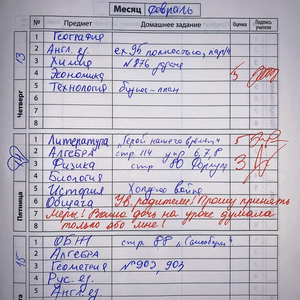 Месяц февраль
№ Предмет Домашнее задание Оценка Подпись учителя
13 Четверг
1 География
2 Англ. яз
3 Химия №876 устно
4 Экономика 5
5 Технология бизнес-план
6
7
8
Пятница
1 Литература „Герой нашего времени" 5
2 Алгебра стр. 114 упр 6,7,8
3 Физика стр 80 Формулы 3
4 Биология
5 История Холодная война
6 Общага Ув. родители! Прошу принять
7 меры! Ваша дочь на уроке думала
8 только обо мне!
15
1 ОБЖ стр. 88 „Самооборона"
2 Алгебра
3 Геометрия №902, 903
4 Рус. яз.
5 Англ. яз